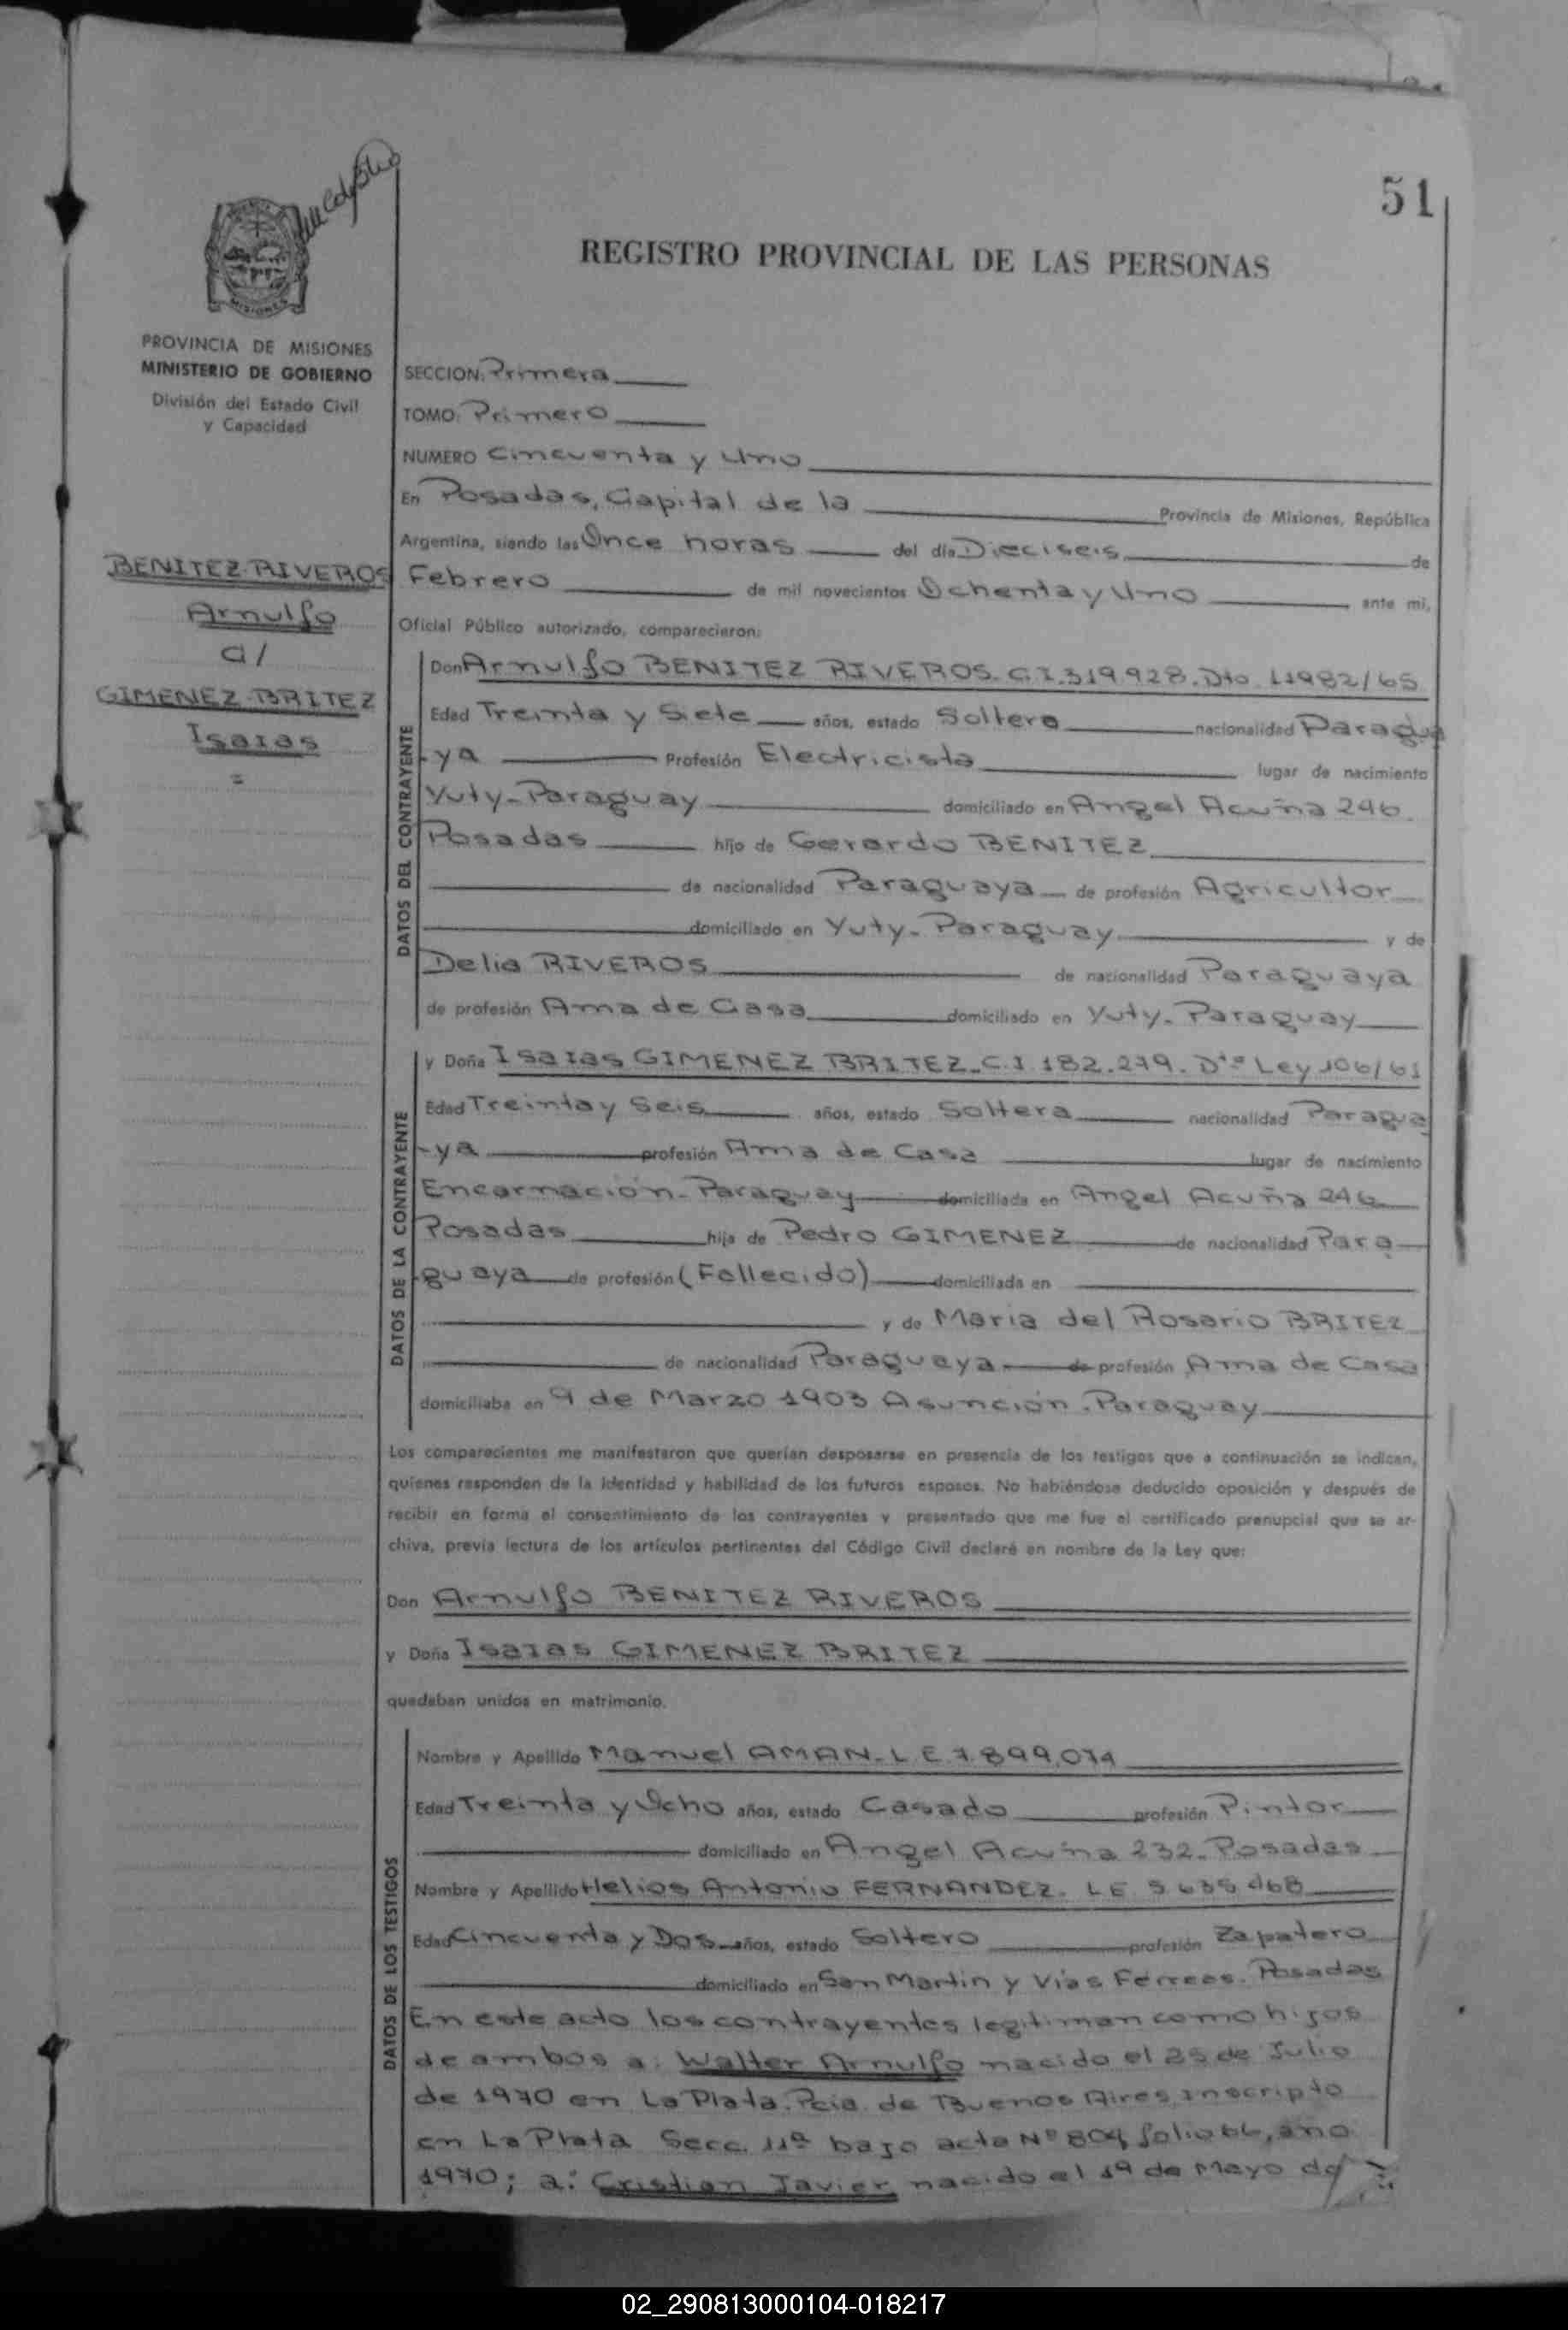 51
REGISTRO PROVINCIAL DE LAS PERSONAS
MISIONES
PROVINCIA DE MISIONES
MINISTERIO DE GOBIERNO
División del Estado Civil
y Capacidad
BENITEZ RIVEROS
Arnulfo
c/
GIMENEZ BRITEZ
Isaias
=
SECCION: Primera
TOMO: Primero
NUMERO Cincuenta y Uno
En Posadas, Capital de la Provincia de Misiones, República
Argentina, siendo las Once horas del día Dieciseis de
Febrero de mil novecientos Ochenta y Uno ante mi,
Oficial Público autorizado, comparecieron:
DATOS DEL CONTRAYENTE
Don Arnulfo BENITEZ RIVEROS. C.I. 319.928. Dto. 11982/65
Edad Treinta y Siete años, estado Soltero nacionalidad Paragua
-ya Profesión Electricista lugar de nacimiento
Yuty-Paraguay domiciliado en Angel Acuña 246.
Posadas hijo de Gerardo BENITEZ
de nacionalidad Paraguaya de profesión Agricultor
domiciliado en Yuty-Paraguay y de
Delia RIVEROS de nacionalidad Paraguaya
de profesión Ama de Casa domiciliado en Yuty-Paraguay
DATOS DE LA CONTRAYENTE
y Doña Isaias GIMENEZ BRITEZ-C.I. 182.279. Dto Ley 106/61
Edad Treinta y Seis años, estado Soltera nacionalidad Paragua
-ya profesión Ama de Casa lugar de nacimiento
Encarnación-Paraguay domiciliada en Angel Acuña 246
Posadas hija de Pedro GIMENEZ de nacionalidad Para
guaya de profesión (Fallecido) domiciliada en
y de Maria del Rosario BRITEZ
de nacionalidad Paraguaya de profesión Ama de Casa
domiciliaba en 9 de Marzo 1903 Asunción. Paraguay
Los comparecientes me manifestaron que querían desposarse en presencia de los testigos que a continuación se indican,
quienes responden de la identidad y habilidad de los futuros esposos. No habiéndose deducido oposición y después de
recibir en forma el consentimiento de los contrayentes y presentado que me fue el certificado prenupcial que se ar-
chiva, previa lectura de los artículos pertinentes del Código Civil declaré en nombre de la Ley que:
Don Arnulfo BENITEZ RIVEROS
y Doña Isaias GIMENEZ BRITEZ
quedaban unidos en matrimonio.
DATOS DE LOS TESTIGOS
Nombre y Apellido Manuel AMAN-L.E. 7.899.074
Edad Treinta y Ocho años, estado Casado profesión Pintor
domiciliado en Angel Acuña 232-Posadas
Nombre y Apellido Helios Antonio FERNANDEZ. L.E. 5.635.468
Edad Cincuenta y Dos años, estado Soltero profesión Zapatero
domiciliado en San Martin y Vias Férreas. Posadas
En este acto los contrayentes legitiman como hijos
de ambos a: Walter Arnulfo nacido el 25 de Julio
de 1970 en La Plata. Pcia. de Buenos Aires inscripto
en La Plata Secc. 11ª bajo acta Nº 804 folio 66, año
1970; a: Cristian Javier nacido el 19 de Mayo de
02_290813000104-018217